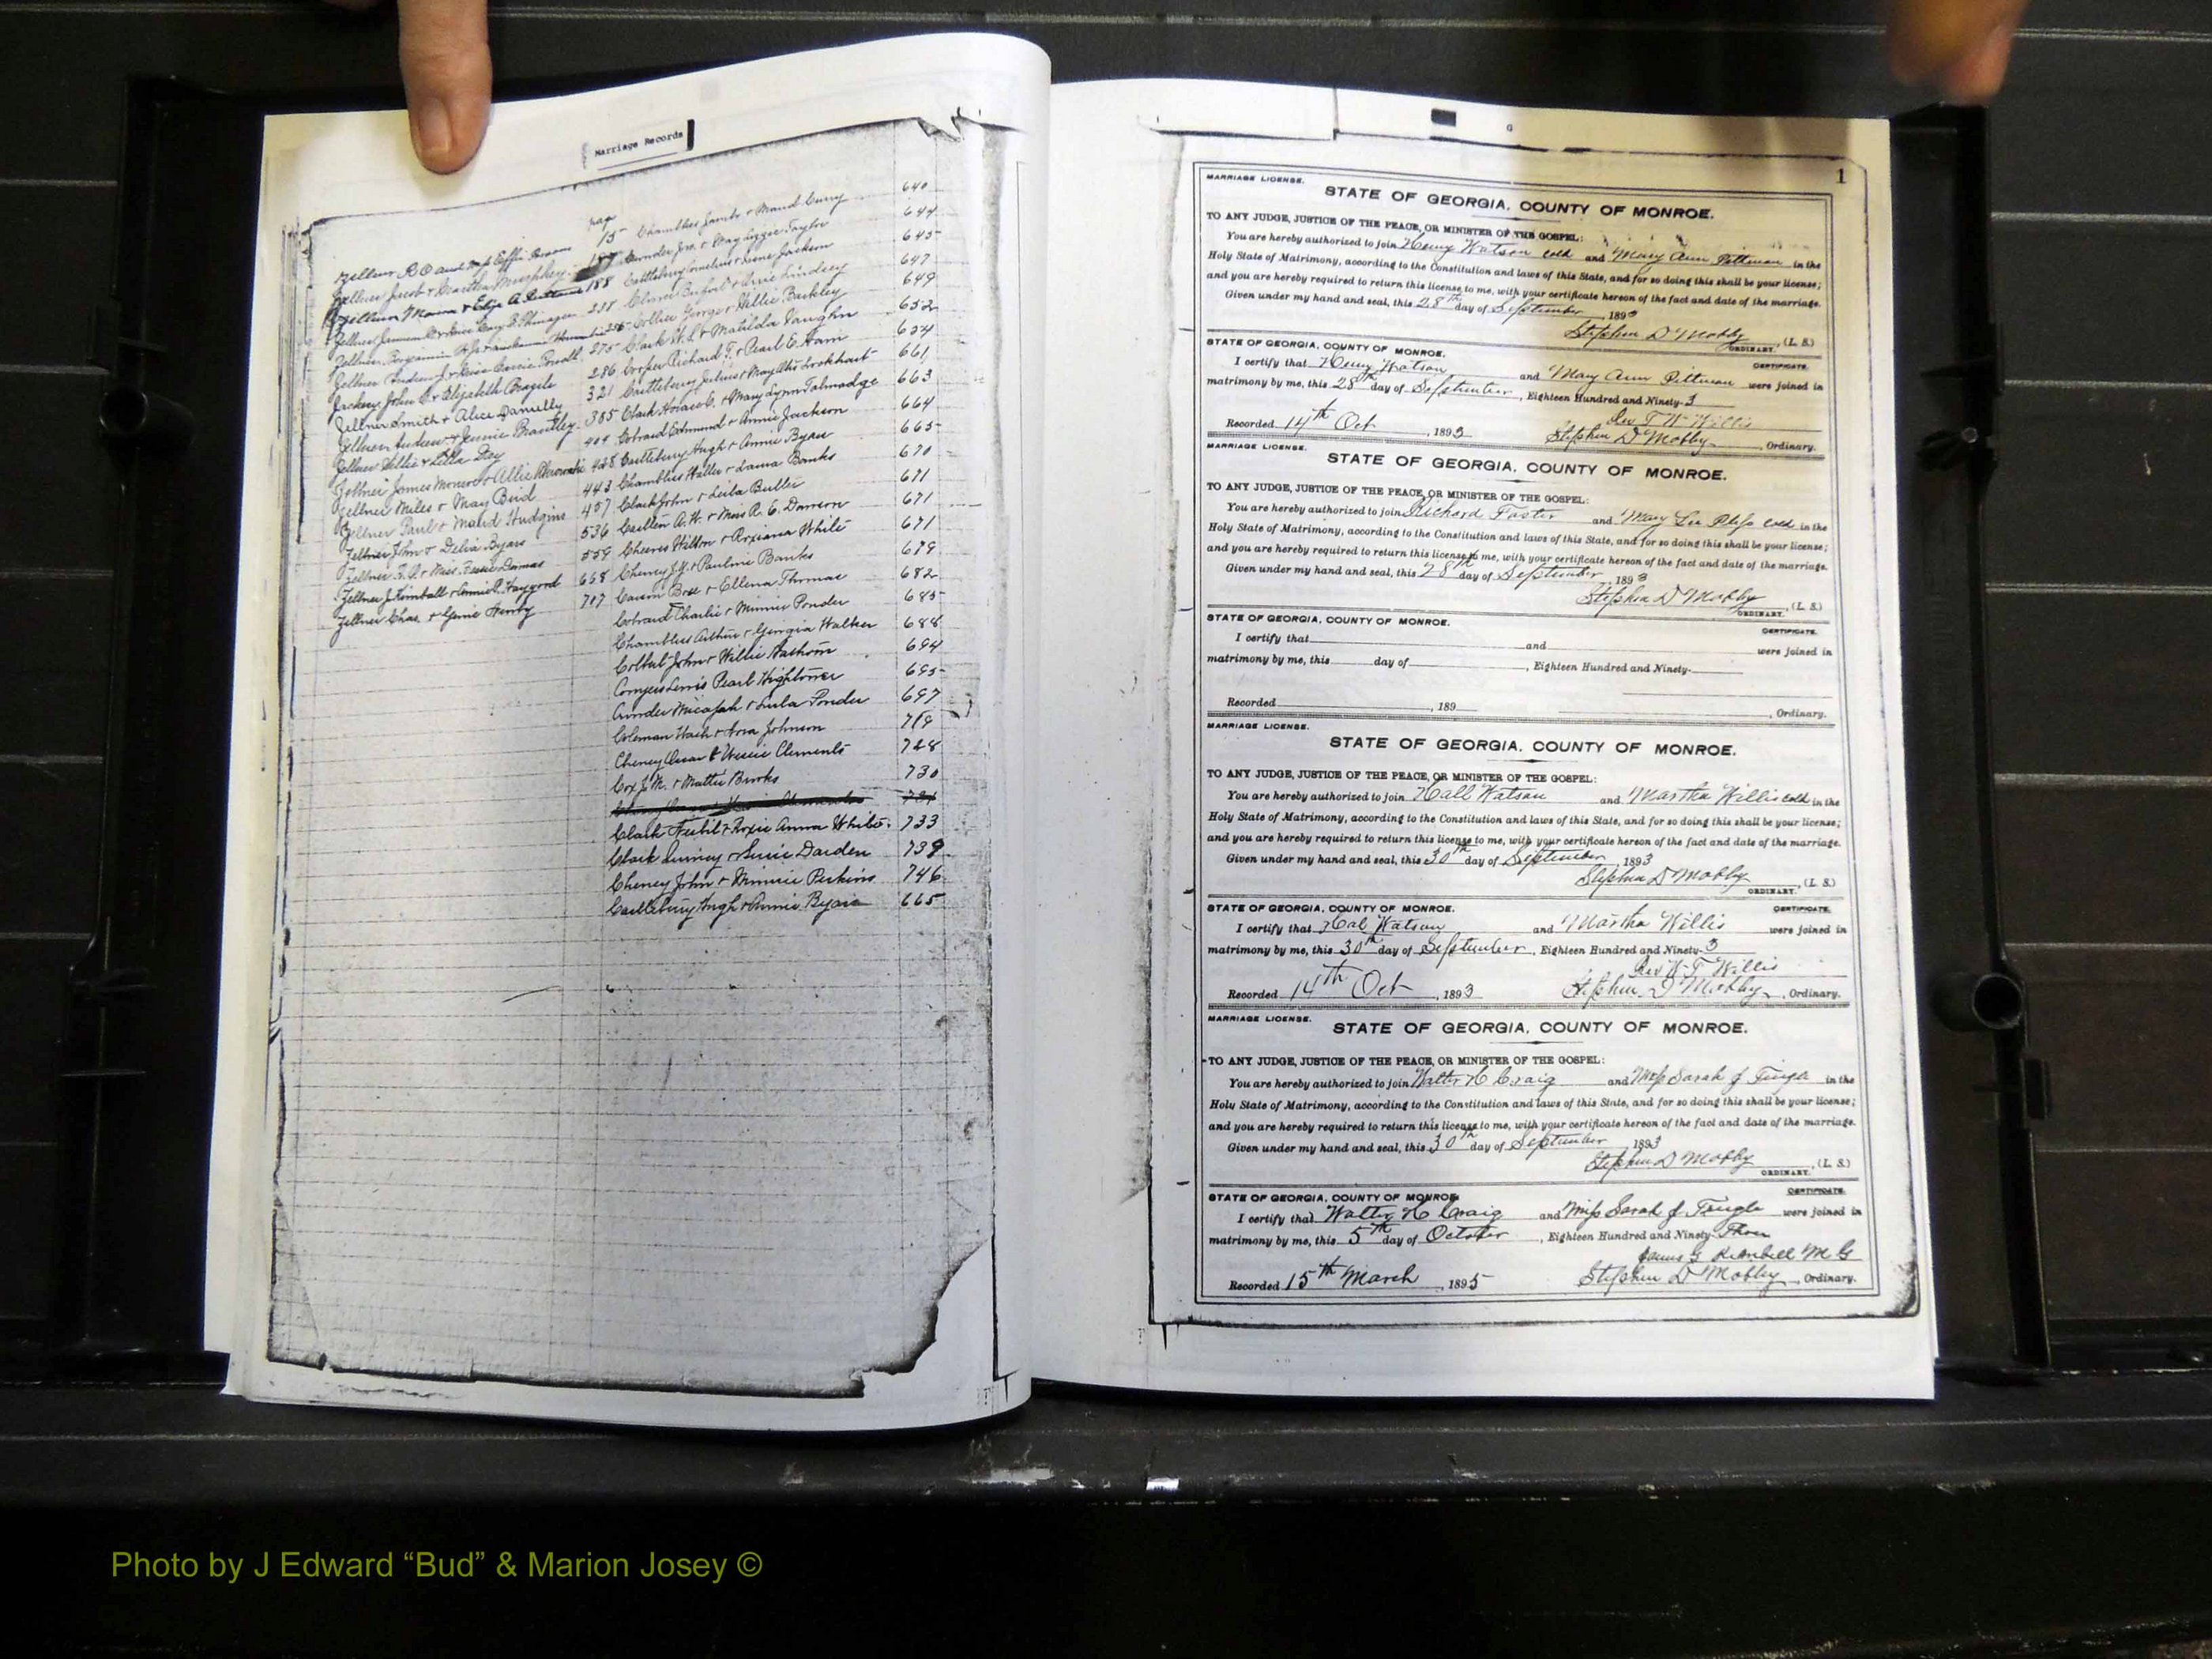 Marriage Records
page
Zellner R O and Miss Effie
15
Zellner Jacob & Martha Murphey
Zellner
188
Zellner
238
Zellner Benjamin
Zellner Andrew J & Miss Carrie
275
Zackery John C & Elizabeth Brazile
286
Zellner Smith & Alice Danielly
321
Zellner Andrew & Jennie Brantley
385
Zellner Willie & Lilla Day
404
Zellner James Monroe & Allie
428
Zellner Miles & May Bird
443
Zellner Paul & Maud Hudgins
457
Zellner John & Delia Byars
536
Zellner & Miss Dumas
559
Zellner J Kimball & Annie P. Haygood
668
Zellner Chas. & Henry
707
Chambliss & Maud Curry 640
& May Lizzie Taylor 644
Castleberry Cornelius & Jackson 645
Lindsey 647
Collier George & Hallie Barkley 649
Clark & Matilda Vaughn 652
Cooper Richard F. & Pearl C. Ham 654
Castleberry Julius & May Lockhart 661
Clark Horace C. & Mary Lynn Talmadge 663
Edmund & Annie Jackson 664
Castleberry Hugh & Annie Byars 665
Chambliss Walter & Banks 670
Clark John & Leila Butler 671
A. W. & Miss R. E. Dawson 671
Cheeves Wilton & White 671
Cheney J.Y. & Paulmie Banks 679
Carson Bose & Ellena Thomas 682
Charlie & Minnie Ponder 685
Chambliss Arthur & Georgia Walker 688
Colbert John & Willie 694
Conyers Lewis Pearl Hightower 695
Micajah & Lula Ponder 697
Coleman & Johnson 719
Cheney & Clements 728
Cox J. M. & Mattie Burks 730
731
Clark & Roxie Anna White 733
Clark Quincy & Susie Darden 739
Cheney John & Minnie Perkins 746
Castleberry Hugh & Annie Byars 665
1
MARRIAGE LICENSE.
STATE OF GEORGIA, COUNTY OF MONROE.
TO ANY JUDGE, JUSTICE OF THE PEACE, OR MINISTER OF THE GOSPEL:
You are hereby authorized to join Henry Watson cold and Mary Ann Pittman in the
Holy State of Matrimony, according to the Constitution and laws of this State, and for so doing this shall be your license;
and you are hereby required to return this license to me, with your certificate hereon of the fact and date of the marriage.
Given under my hand and seal, this 28th day of September, 1893
Stephen D Mobley (L. S.)
ORDINARY.
STATE OF GEORGIA, COUNTY OF MONROE. CERTIFICATE.
I certify that Henry Watson and Mary Ann Pittman were joined in
matrimony by me, this 28th day of September, Eighteen Hundred and Ninety-3
Rev T W Willis
Recorded 14th Oct, 1893 Stephen D Mobley, Ordinary.
MARRIAGE LICENSE.
STATE OF GEORGIA, COUNTY OF MONROE.
TO ANY JUDGE, JUSTICE OF THE PEACE, OR MINISTER OF THE GOSPEL:
You are hereby authorized to join Richard Foster and Mary Lee cold in the
Holy State of Matrimony, according to the Constitution and laws of this State, and for so doing this shall be your license;
and you are hereby required to return this license to me, with your certificate hereon of the fact and date of the marriage.
Given under my hand and seal, this 28th day of September, 1893
Stephen D Mobley (L. S.)
ORDINARY.
STATE OF GEORGIA, COUNTY OF MONROE. CERTIFICATE.
I certify that and were joined in
matrimony by me, this day of , Eighteen Hundred and Ninety-
Recorded , 189 , Ordinary.
MARRIAGE LICENSE.
STATE OF GEORGIA, COUNTY OF MONROE.
TO ANY JUDGE, JUSTICE OF THE PEACE, OR MINISTER OF THE GOSPEL:
You are hereby authorized to join Hall Watson and Martha Willis cold in the
Holy State of Matrimony, according to the Constitution and laws of this State, and for so doing this shall be your license;
and you are hereby required to return this license to me, with your certificate hereon of the fact and date of the marriage.
Given under my hand and seal, this 30th day of September, 1893
Stephen D Mobley (L. S.)
ORDINARY.
STATE OF GEORGIA, COUNTY OF MONROE. CERTIFICATE.
I certify that Hal Watson and Martha Willis were joined in
matrimony by me, this 30th day of September, Eighteen Hundred and Ninety-3
Rev W T Willis
Recorded 14th Oct, 1893 Stephen D Mobley, Ordinary.
MARRIAGE LICENSE.
STATE OF GEORGIA, COUNTY OF MONROE.
TO ANY JUDGE, JUSTICE OF THE PEACE, OR MINISTER OF THE GOSPEL:
You are hereby authorized to join Walter H Craig and Miss Sarah J Tingle in the
Holy State of Matrimony, according to the Constitution and laws of this State, and for so doing this shall be your license;
and you are hereby required to return this license to me, with your certificate hereon of the fact and date of the marriage.
Given under my hand and seal, this 30th day of September, 1893
Stephen D Mobley (L. S.)
ORDINARY.
STATE OF GEORGIA, COUNTY OF MONROE. CERTIFICATE.
I certify that Walter H Craig and Miss Sarah J Tingle were joined in
matrimony by me, this 5th day of October, Eighteen Hundred and Ninety-Three
James G Kimbell M G
Recorded 15th March, 1895 Stephen D Mobley, Ordinary.
Photo by J Edward “Bud” & Marion Josey ©